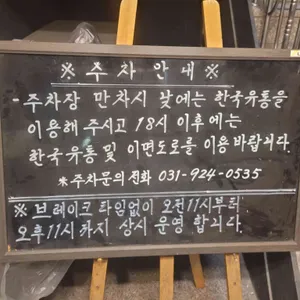 ※ 주차안내 ※
- 주차장 만차시 낮에는 한국유통을
이용해 주시고 18시 이후에는
한국유통 및 이면도로를 이용 바랍니다.
※주차문의 전화 031-924-0535
※ 브레이크 타임없이 오전11시부터
오후11시까지 상시 운영 합니다.